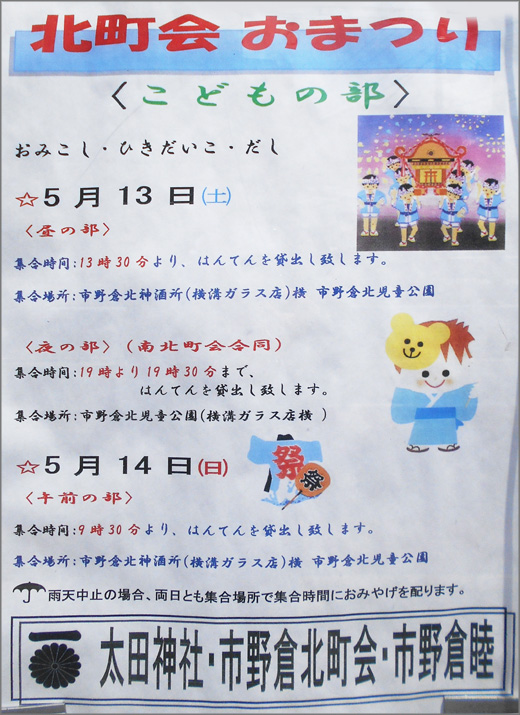 北町会 おまつり
〈こどもの部〉
おみこし・ひきだいこ・だし
☆5月13日(土)
〈昼の部〉
集合時間:13時30分より、はんてんを貸出し致します。
集合場所:市野倉北神酒所(横溝ガラス店)横 市野倉北児童公園
〈夜の部〉(南北町会合同)
集合時間:19時より19時30分まで、
はんてんを貸出し致します。
集合場所:市野倉北児童公園(横溝ガラス店横 )
☆5月14日(日)
祭
祭
〈午前の部〉
集合時間:9時30分より、はんてんを貸出し致します。
集合場所:市野倉北神酒所(横溝ガラス店)横 市野倉北児童公園
雨天中止の場合、両日とも集合場所で集合時間におみやげを配ります。
太田神社・市野倉北町会・市野倉睦